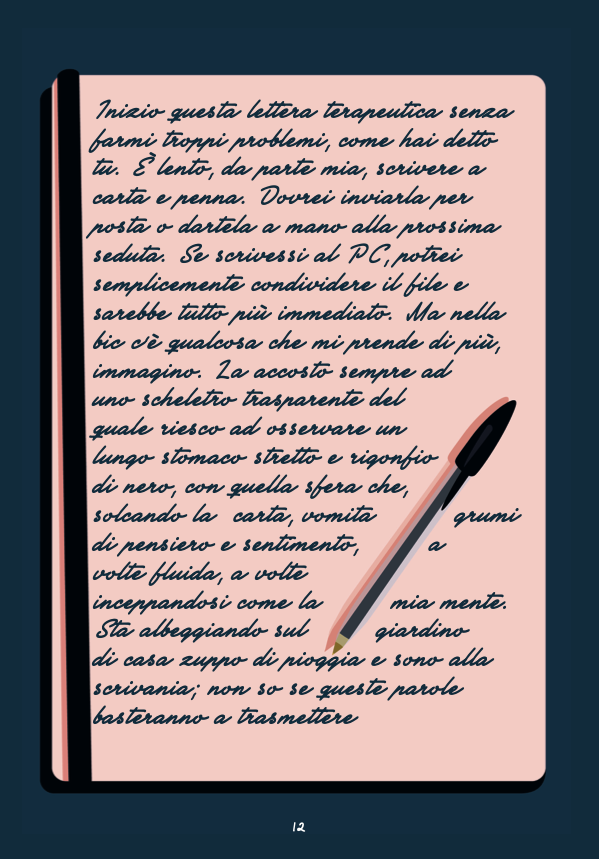 Inizio questa lettera terapeutica senza
farmi troppi problemi, come hai detto
tu. È lento, da parte mia, scrivere a
carta e penna. Dovrei inviarla per
posta o dartela a mano alla prossima
seduta. Se scrivessi al PC, potrei
semplicemente condividere il file e
sarebbe tutto più immediato. Ma nella
bic c'è qualcosa che mi prende di più,
immagino. La accosto sempre ad
uno scheletro trasparente del
quale riesco ad osservare un
lungo stomaco stretto e rigonfio
di nero, con quella sfera che,
solcando la carta, vomita grumi
di pensiero e sentimento, a
volte fluida, a volte
inceppandosi come la mia mente.
Sta albeggiando sul giardino
di casa zuppo di pioggia e sono alla
scrivania; non so se queste parole
basteranno a trasmettere
12